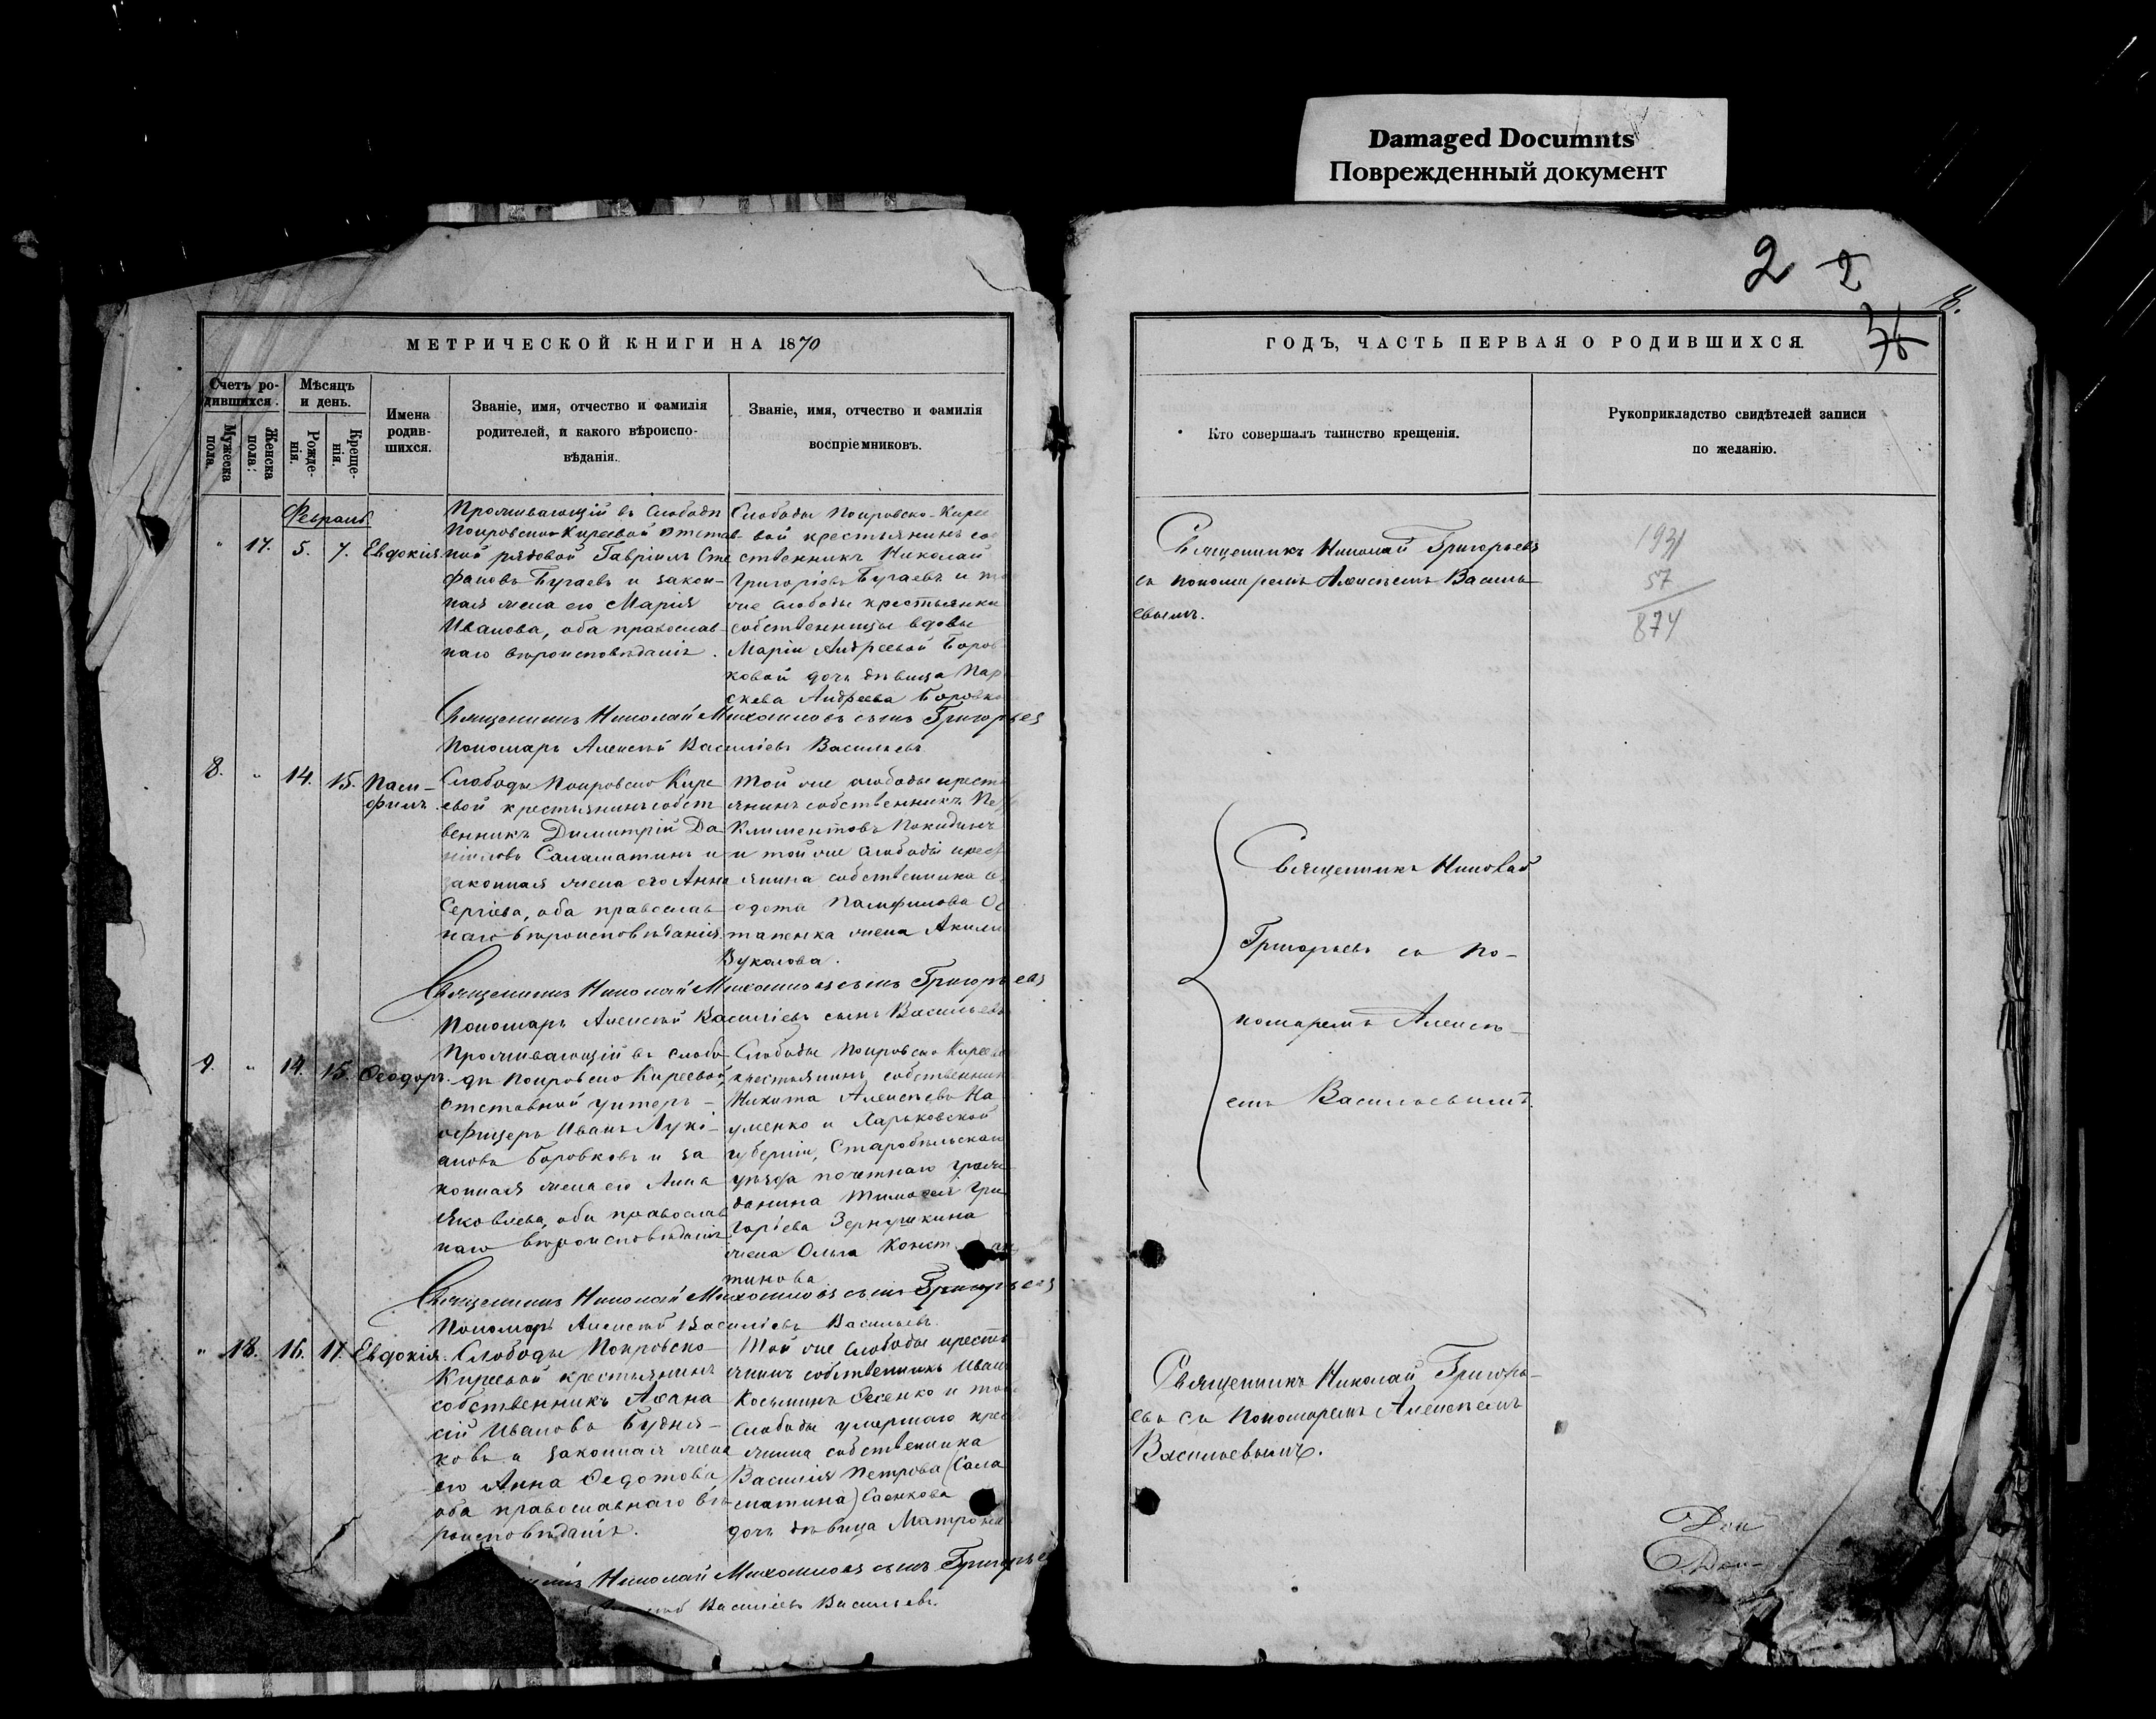 Damaged Documnts
Поврежденный документ
2 2
МЕТРИЧЕСКОЙ КНИГИ НА 1870
Счетъ ро-
дившихся.
Мужеска
пола.
Женска
пола:
Мѣсяцъ
и день.
Рожде-
нія.
Креще-
нія.
Имена
родив-
шихся.
Званіе, имя, отчество и фамилія
родителей, и какого вѣроиспо-
вѣданія.
Званіе, имя, отчество и фамилія
воспріемниковъ.
Февраль
" 17. 5. 7. Евдокія.
Проживающій въ Слободѣ
Покровско-Киреевой отстав
ной рядовой Гавріилъ Сте
фановъ Бугаевъ и закон-
ная жена его Марія
Иванова, оба православ-
наго вѣроисповѣданія.
Слободы Покровско-Кире
вой крестьянинъ со
ственникъ Николай
Григоріевъ Бугаевъ и
же слободы крестьянки
собственницы вдовы
Маріи Андреевой Боров
ковой дочь дѣвица Пар
скева Андреева Боровко
Священникъ Николай Михаиловъ сынъ Григорьевъ
Пономарь Алексѣй Василіевъ Васильевъ
8. " 14. 15. Пам-
филъ.
Слободы Покровско Кире
евой крестьянинъ собст
венникъ Димитрій Да
ніиловъ Саламатинъ и
законная жена его Анна
Сергіева, оба православ
наго вѣроисповѣданія
Той же слободы кресть
янинъ собственникъ
Климентовъ Покидинъ
и той же слободы крест
янина собственника
едота Памфилова Ос
тапенка жена Акили
Вукалова.
Священникъ Николай Михаиловъ сынъ Григорьевъ
Пономарь Алексѣй Василіевъ сынъ Васильевъ
9. " 14. 15. Ѳеодоръ.
Проживающій въ слобо-
дѣ Покровско Киреевой,
отставной унтеръ-
офицеръ Иванъ Лукі-
ановъ Боровковъ и за
конная жена его Анна
Яковлева, оба православ
наго вѣроисповѣданія
Слободы Покровско Кирее
крестьянинъ собственник
Никита Алексѣевъ На
уменко и Харьковской
губерніи, Старобѣльскаго
уѣзда почетнаго граж
данина Тимоѳея Гри
горіева Зернушкина
жена Ольга Конст
тинова
Священникъ Николай Михаиловъ сынъ Григорьевъ
Пономарь Алексѣй Василіевъ Васильевъ.
" 18. 16. 17. Евдокія.
Слободы Покровско-
Киреевой крестьянинъ
собственникъ Аѳана
сій Ивановъ Будня-
ковъ и законная жена
его Анна Ѳедотова,
оба православнаго вѣ-
роисповѣданія.
Той же слободы кресть
янинъ собственникъ Иван
Косьминъ Ѳесенко и той
слободы умершаго крес
янина собственника
Василія Петрова (Сала
матина) Саенкова
дочь дѣвица Матрона
Николай Михаиловъ сынъ Григорьев
Василіевъ Васильевъ.
ГОДЪ, ЧАСТЬ ПЕРВАЯ О РОДИВШИХСЯ.
Кто совершалъ таинство крещенія.
Рукоприкладство свидѣтелей записи
по желанію.
Священникъ Николай Григорьевъ
съ пономаремъ Алексѣемъ Василь-
евымъ.
1931
57
874
Священникъ Николай
Григорьевъ съ по-
номаремъ Алексѣ-
емъ Васильевымъ.
Священникъ Николай Григорь-
евъ съ Пономаремъ Алексѣемъ
Васильевымъ.